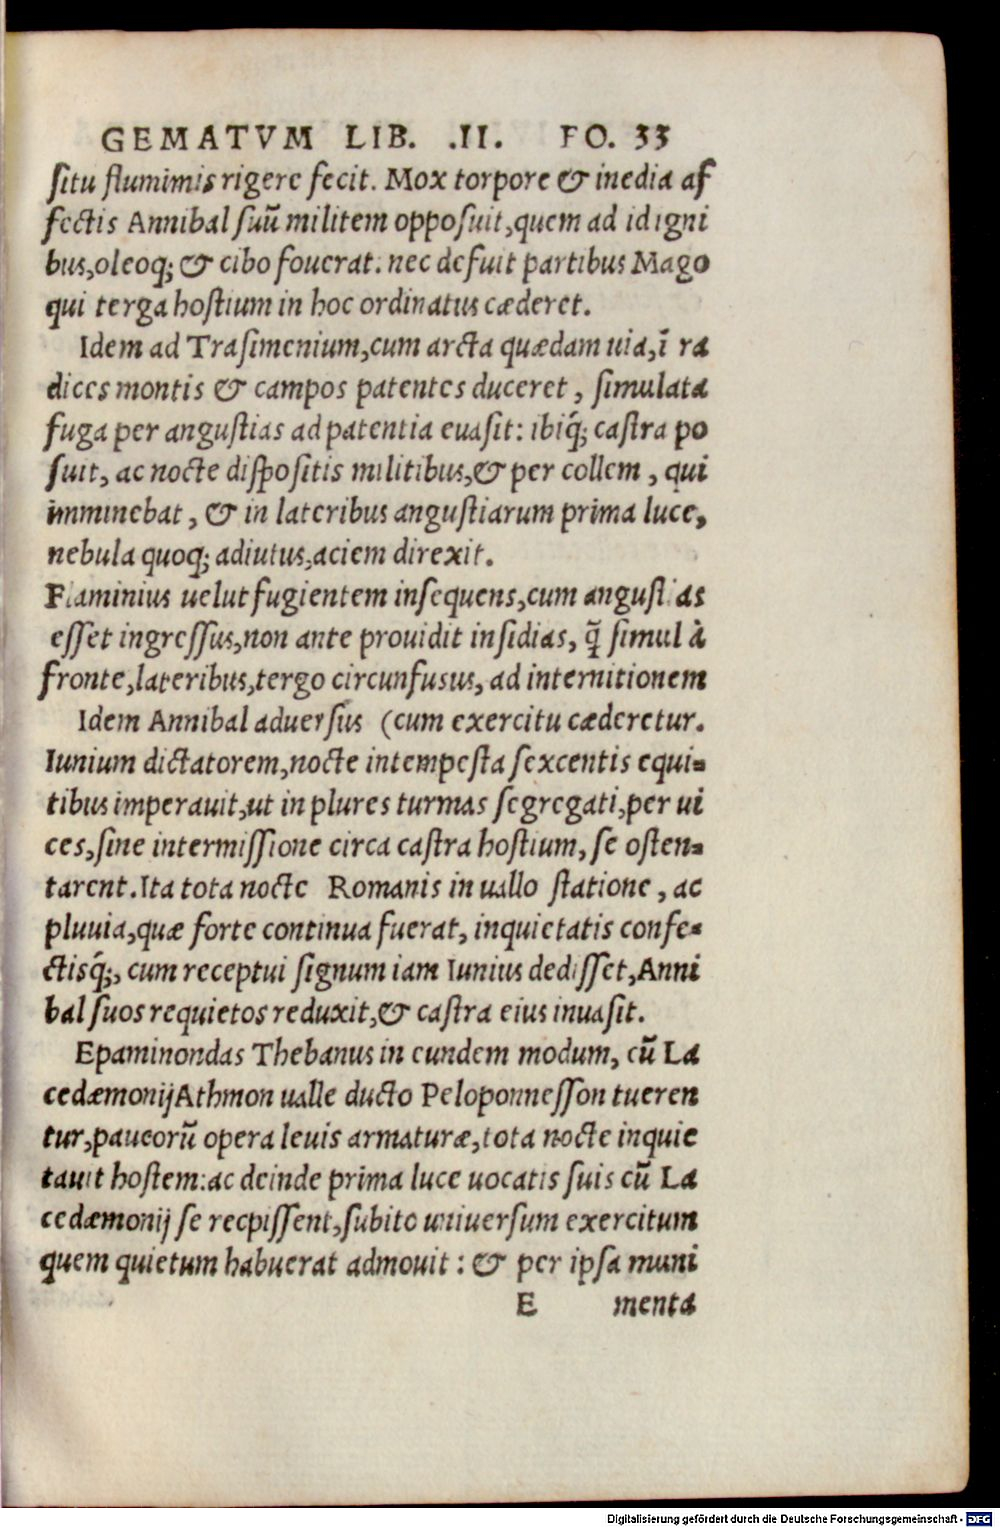 GEMATVM LIB. .II. FO. 33
ſitu flumimis rigere fecit. Mox torpore & inedia af
fectis Annibal ſuũ militem oppoſuit,quem ad id igni
bus,oleoq; & cibo fouerat. nec defuit partibus Mago
qui terga hoſtium in hoc ordinatus cæderet.
Idem ad Traſimenium,cum arcta quædam uia,ĩ ra
dices montis & campos patentes duceret, ſimulata
fuga per anguſtias ad patentia euaſit: ibiq́; caſtra po
ſuit, ac nocte diſpoſitis militibus,& per collem, qui
imminebat, & in lateribus anguſtiarum prima luce,
nebula quoq; adiutus,aciem direxit.
Flaminius uelut fugientem inſequens,cum anguſtias
eſſet ingreſſus,non ante prouidit inſidias, q̃ ſimul à
fronte,lateribus,tergo circunfusus, ad internitionem
Idem Annibal aduerſus (cum exercitu cæderetur.
Iunium dictatorem,nocte intempeſta ſexcentis equi-
tibus imperauit,ut in plures turmas ſegregati,per ui
ces,ſine intermiſſione circa caſtra hoſtium, ſe oſten-
tarent.Ita tota nocte Romanis in uallo ſtatione, ac
pluuia,quæ forte continua fuerat, inquietatis confe-
ctisq́;, cum receptui ſignum iam Iunius dediſſet,Anni
bal ſuos requietos reduxit,& caſtra eius inuaſit.
Epaminondas Thebanus in eundem modum, cũ La
cedæmonij Athmon ualle ducto Peloponneſſon tueren
tur,paucorũ opera leuis armaturæ,tota nocte inquie
tauit hoſtem:ac deinde prima luce uocatis ſuis cũ La
cedæmonij ſe recpiſſent,ſubito uniuerſum exercitum
quem quietum habuerat admouit: & per ipſa muni
E menta
Digitalisierung gefördert durch die Deutsche Forschungsgemeinschaft - DFG